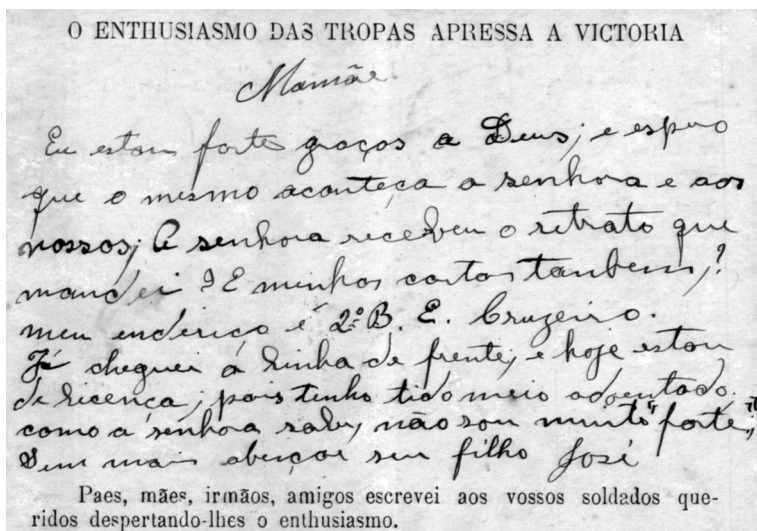 O ENTHUSIASMO DAS TROPAS APRESSA A VICTORIA
Mamãe
Eu estou forte graças a Deus; e espero
que o mesmo aconteça a senhora e aos
nossos; A senhora recebeu o retrato que
mandei? E minhas cartas tanbem,?
meu enderiço é 2º B. E. Cruzeiro.
Já cheguei á linha de frente, e hoje estou
de licença; pois tenho tido meio adoentado.
como a senhora sabe, não sou muito "forte",
Sem mais abençoe seu filho José
Paes, mães, irmãos, amigos escrevei aos vossos soldados que-
ridos despertando-lhes o enthusiasmo.